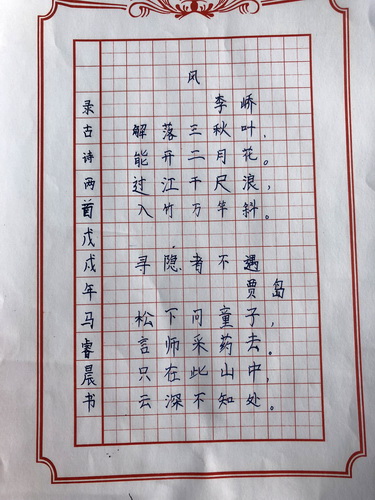 风
李峤
解落三秋叶，
能开二月花。
过江千尺浪，
入竹万竿斜。
寻隐者不遇
贾岛
松下问童子，
言师采药去。
只在此山中，
云深不知处。
录古诗两首戊戌年马睿晨书